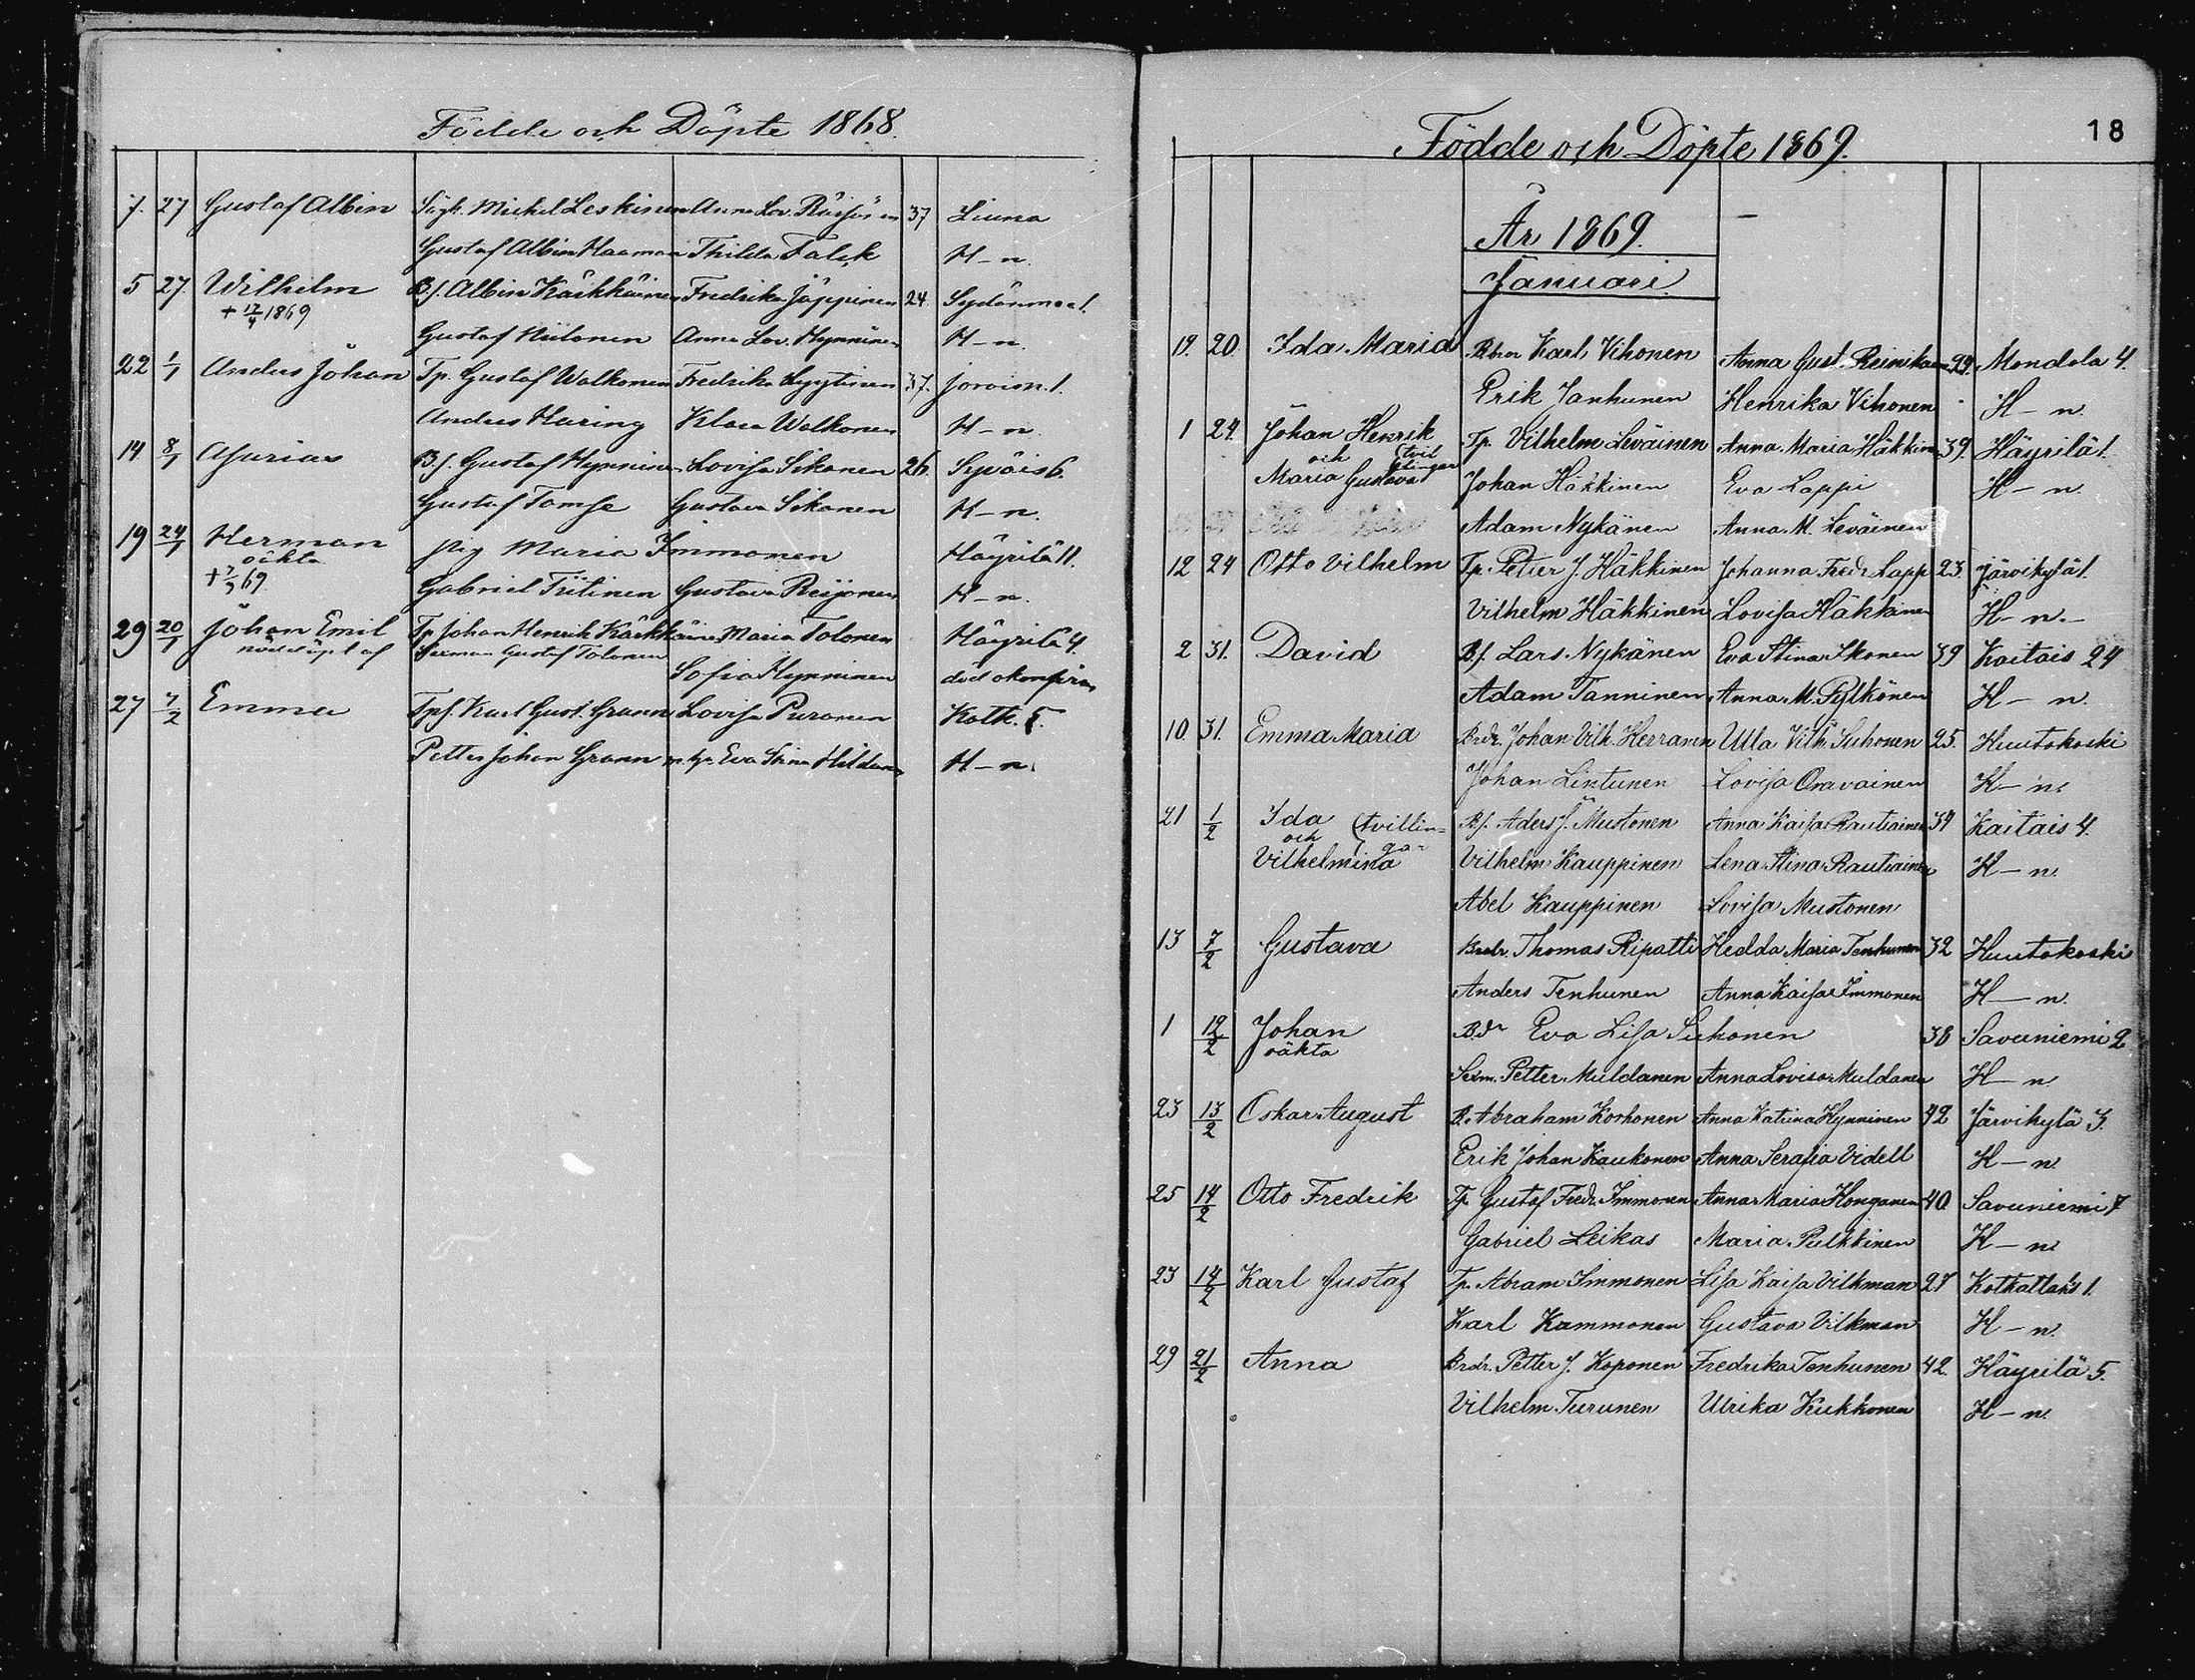 Födde och Döpte 1868.
7. 27 Gustaf Albin Michel Leskinen Anna Lov. 37 Liuna
Gustaf Albin Haaman Thilda Falck H-n.
5 27 Wilhelm Bf. Albin Kärkkäinen Fredrika Jäppinen 24. Sydänmaa 1.
+ 17/4 1869
Gustaf Niilonen Anna Lov. Hynninen H-n.
22 1/1 Anders Johan Tp. Gustaf Walkonen Fredrika Lyytinen 37. Joroisn. 1.
Anders Haring Klara Walkonen H-n.
14 8/1 Asarias Bf. Gustaf Hynninen Lovisa Sikanen 26. Syväis 6.
Gustaf Gustava Sikanen H-n.
19 24/1 Herman Pig Maria Immonen Häyrilä 11.
oäkta
+ 7/3 69. Gabriel Tiitinen Gustava Reijonen H-n.
29 20/1 Johan Emil Tp Johan Henrik Kärkkäinen Maria Tolonen Häyrilä 4.
nöddöpt af Gustaf Tolonen
Sofia Hynninen
27 7/2 Emma Tpf. Karl Gust. Grann Lovisa Puranen Kotk. 5.
Petter Johan Grann Eva Stina H-n.
18
Födde och Döpte 1869.
År 1869.
Januari.
19. 20. Ida Maria Karl Vihonen Anna Gust. Reinikainen 29. Mondola 4.
Erik Janhunen Henrika Vihonen H-n.
1 24. Johan Henrik Tp. Vilhelm Leväinen Anna Maria Häkkinen 39. Häyrilä 1.
och (tvillingar
Maria Gustava Johan Häkkinen Eva Lappi H-n.
Adam Nykänen Anna M. Leväinen
12 24 Otto Vilhelm Tp. Petter J. Häkkinen Johanna Fredr. Lapp 23. Järvikylä 1.
Vilhelm Häkkinen Lovisa Häkkinen H-n.
2 31. David Bf. Lars Nykänen Eva Stina Ikonen 39 Kaitais 24
Adam Tanninen Anna M. Pylkönen H-n.
10. 31. Emma Maria Brdr. Johan Vilh. Herranen Ulla Vilh. Suhonen 25. Huutokoski
Johan Lintunen Lovisa Oravainen H-n.
21 1/2 Ida (tvillin- Bf. Aders J. Mustonen Anna Kaisa Rautiainen 34 Kaitais 4.
och gar
Vilhelmina Vilhelm Kauppinen Lena Stina Rautiainen H-n.
Abel Kauppinen Lovisa Mustonen
13 7/2 Gustava Brdr. Thomas Ripatti Hedda Maria Tenhunen 32 Huutokoski
Anders Tenhunen Anna Kaisa Immonen H-n.
1 12/2 Johan Bdr Eva Lisa Suhonen 38 Savuniemi 2
oäkta
Petter Muldanen Anna Lovisa Muldanen H-n
23 13/2 Oskar August B. Abraham Korhonen Anna Katrina Hynninen 42 Järvikylä 3.
Erik Johan Kaukonen Anna Serafia Videll H-n.
25 14/2 Otto Fredrik Tp. Gustaf Fredr. Immonen Anna Maria Honganen 40 Savuniemi 7
Gabriel Leikas Maria Pulkkinen H-n.
23 14/2 Karl Gustaf Tp. Abram Immonen Lisa Kaisa Vilkman 27 Kotkatlaks 1.
Karl Kammonen Gustava Vilkman H-n.
29 21/2 Anna Brdr. Petter J. Koponen Fredrika Tenhunen 42. Häyrilä 5.
Vilhelm Turunen Ulrika Kukkonen H-n.